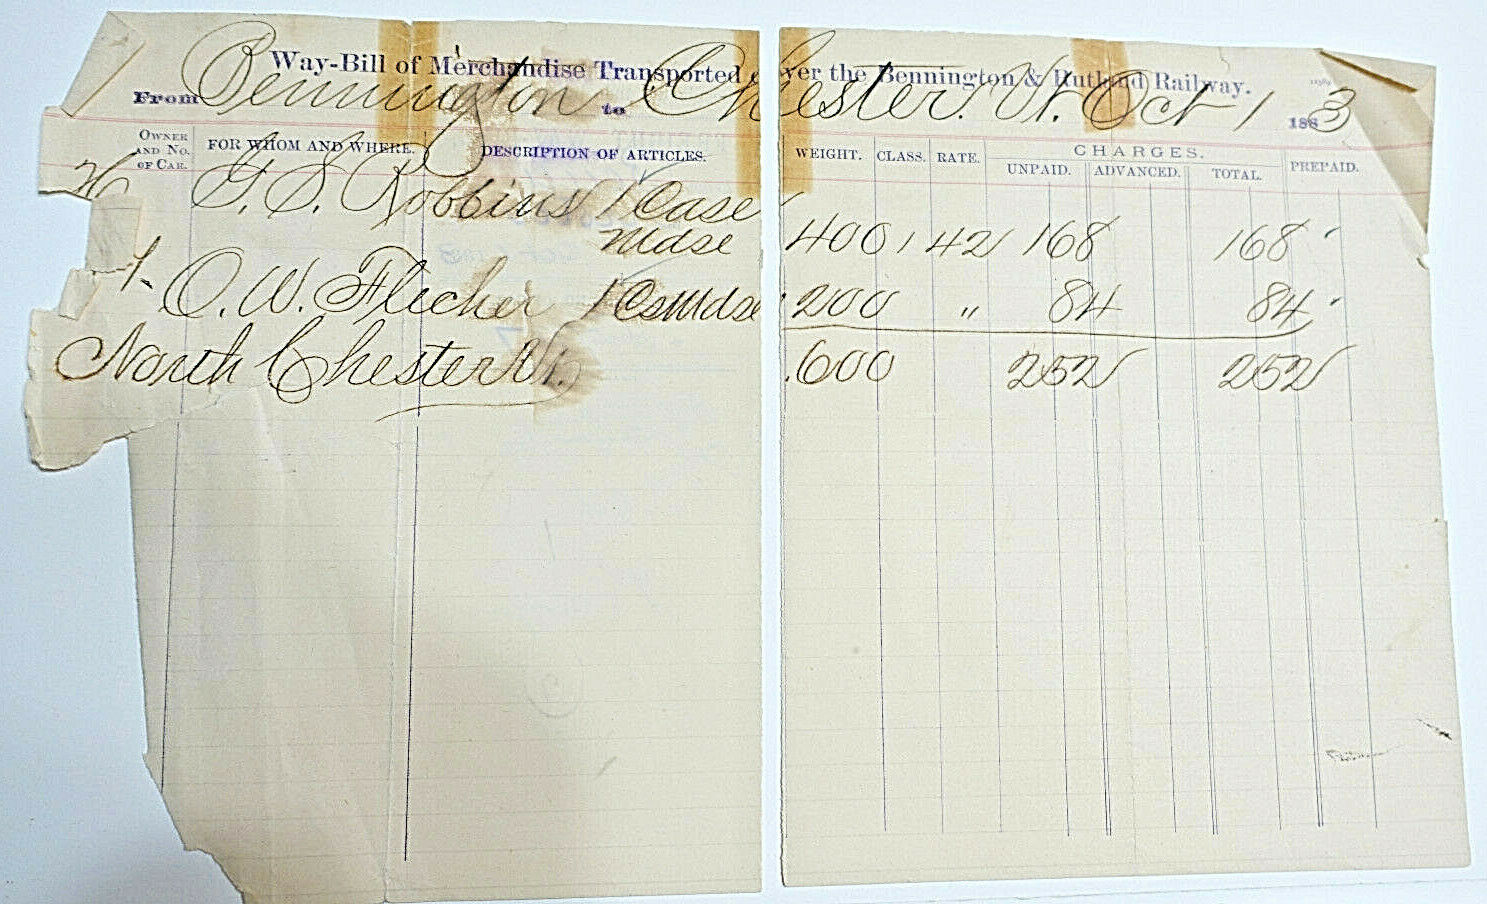 Way-Bill of Merchandise Transported over the Bennington & Rutland Railway.
From Bennington to Chester. Vt. Oct 1 1883
OWNER AND No. OF CAR. FOR WHOM AND WHERE. DESCRIPTION OF ARTICLES. WEIGHT. CLASS. RATE. CHARGES. UNPAID. ADVANCED. TOTAL. PREPAID.
G. S. Robbins 1 Case
Mdse 400 1 42 168 168
O. W. Flecher 1 Cs Mdse 200 " 84 84
North Chester Vt. 600 252 252